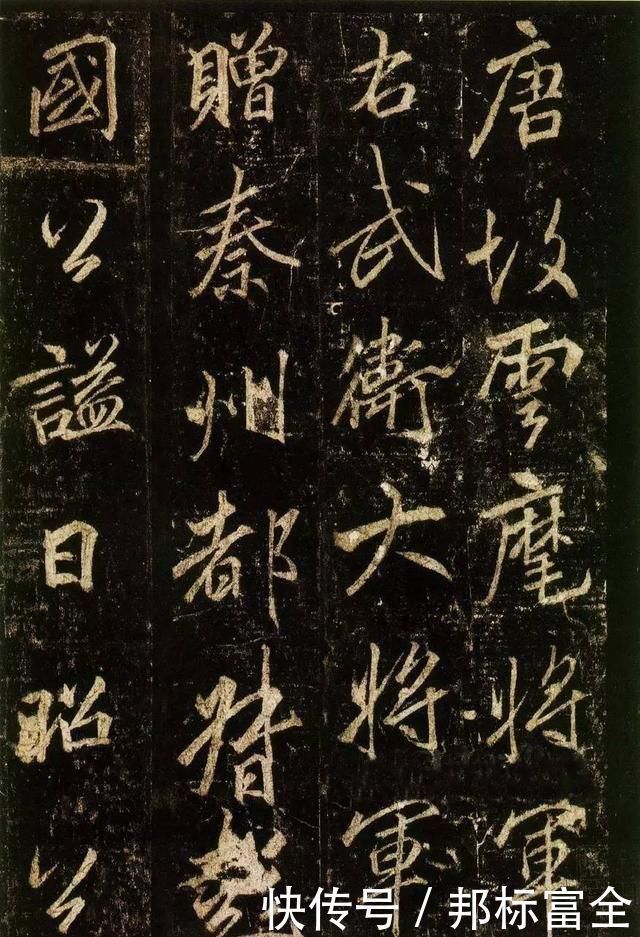 唐故雲麾將軍
右武衛大將軍
贈秦州都督彭
國公謚曰昭公
快传号 / 邦标富全